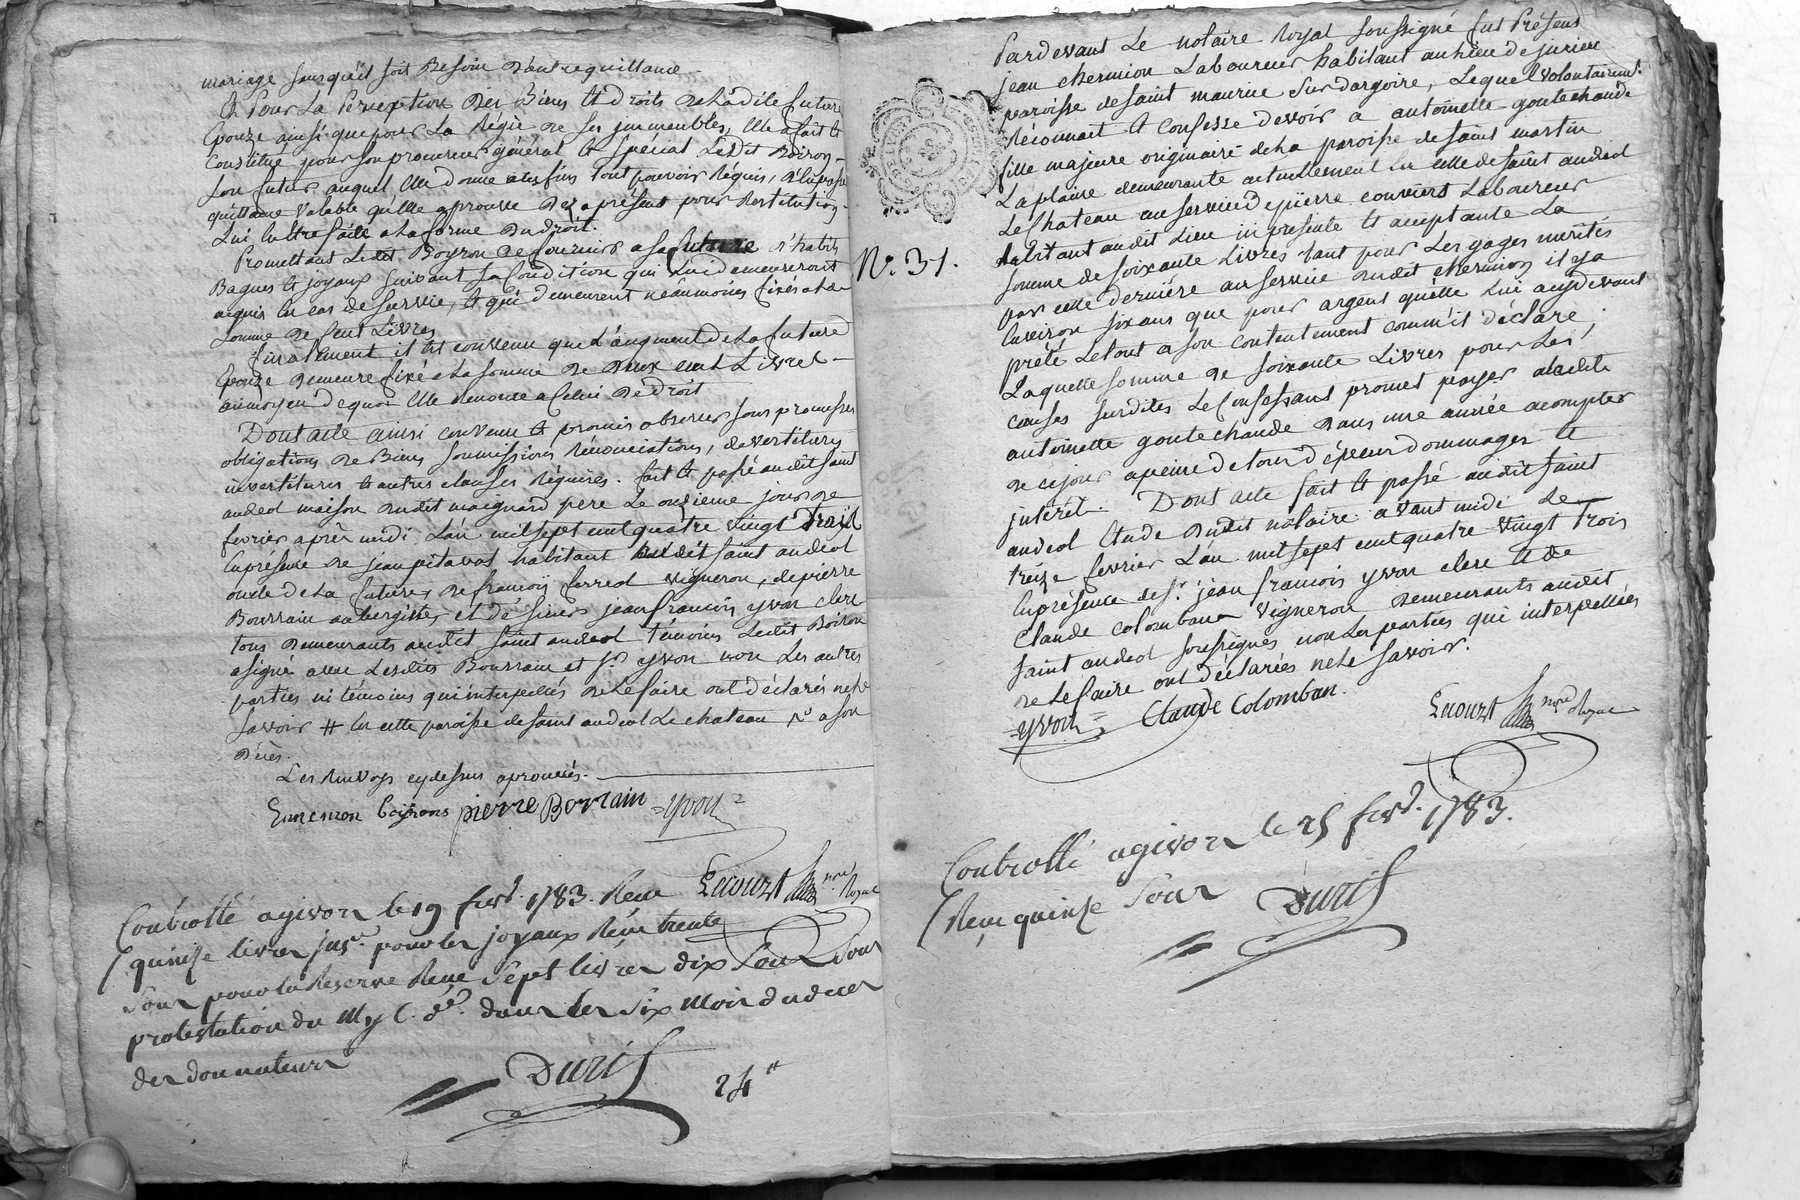 mariage sans qu'il soit Besoin d'autre quittance
Et Pour La Perception des Biens Et droits de La dite future
Epouze ainsi que pour La Régie de ses immeubles, Elle a fait et
Constitué pour son procureur général et special Ledit Boiron
son futur auquel Elle donne a ces fins tout pouvoir Requis,
quittance valable qu'elle approuve des a présent pour Restitution
Lui En Etre faite a La forme du droit.
Promettant Ledit Boyron de fournir a sa future d'habits
Bagues et joyaux suivant sa Condition qui Lui demeureront
acquis En cas de survie, et qui demeurent néanmoins fixés a La
somme de Cent Livres
finalement il Est convenu que L'augment de La future
Epouze demeure fixé a La somme de deux cent Livres
au moyen de quoi Elle renonce a Celui de droit
Dont acte ainsi convenu et promis observer sous promesses
obligations de Biens soumissions Rénonciations, devertitures
investitures et autres clauses Réquises. fait et passé au dit saint
andeol maison dudit maignard pere Le onzieme jour de
fevrier après midi L'an mil sept cent quatre vingt trois
En présence de jean pitavat habitant dudit saint andeol
oncle de La future, de francois ferreol vigneron, de pierre
Bourrain aubergiste, et de sieur jean francois yvon clerc
tous demeurants audit saint andeol témoins Ledit Boiron
a signé avec Lesdits Bourrain et sr. yvon non Les autres
parties ni témoins qui interpellés de Le faire ont déclarés ne Le
savoir # En cette paroisse de saint andeol Le chateau a son
décès.
Les Renvoys cy dessus aprouvés.
Ennemon boyrons pierre Borrain =yvon=
Lecourt nre Royal
Controllé a givors le 19 fevr. 1783. Reçu
quinze livres pour les joyaux Reçu trente
sous pour la Reserve Reçu Sept livres dix Sous Sous
protestation du dans les Six mois du deces
des donnateurs
Duris
24tt
Pardevant Le notaire Royal soussigné fut Présent
jean chermion Laboureur habitant au lieu de jurieu
paroisse de saint maurice sur dargoire, Lequel volontairemt.
Réconnait et confesse devoir a antoinette goutechaude
fille majeure originaire de La paroisse de saint martin
La plaine demeurante actuellement En celle de saint andeol
Le chateau au service de pierre couviert Laboureur
habitant audit Lieu ici presente et acceptante La
N°. 31.
somme de soixante Livres tant pour Les gages merités
par cette derniere au service dudit chermion il y a
Environ six ans que pour argent quelle Lui a cy devant
prété Le tout a son contentement comm'il déclare;
Laquelle somme de soixante Livres pour Les
causes susdites Le Confessant promet payer a ladite
antoinette goutechaude dans une année a compter
de ce jour a peine de tous dépens dommages et
interêt. Dont acte fait et passé audit saint
andeol Etude dudit notaire avant midi Le
treize fevrier L'an mil sept cent quatre vingt trois
En présence de sr. jean francois yvon clerc et de
Claude colomban vigneron demeurants audit
saint andeol soussignés non Les parties qui interpellées
de Le faire ont déclarées ne Le savoir.
=yvon= Claude Colomban. Lecourt nre Royal
Controllé a givors le 25 fevr. 1783.
Reçu quinze Sous
Duris